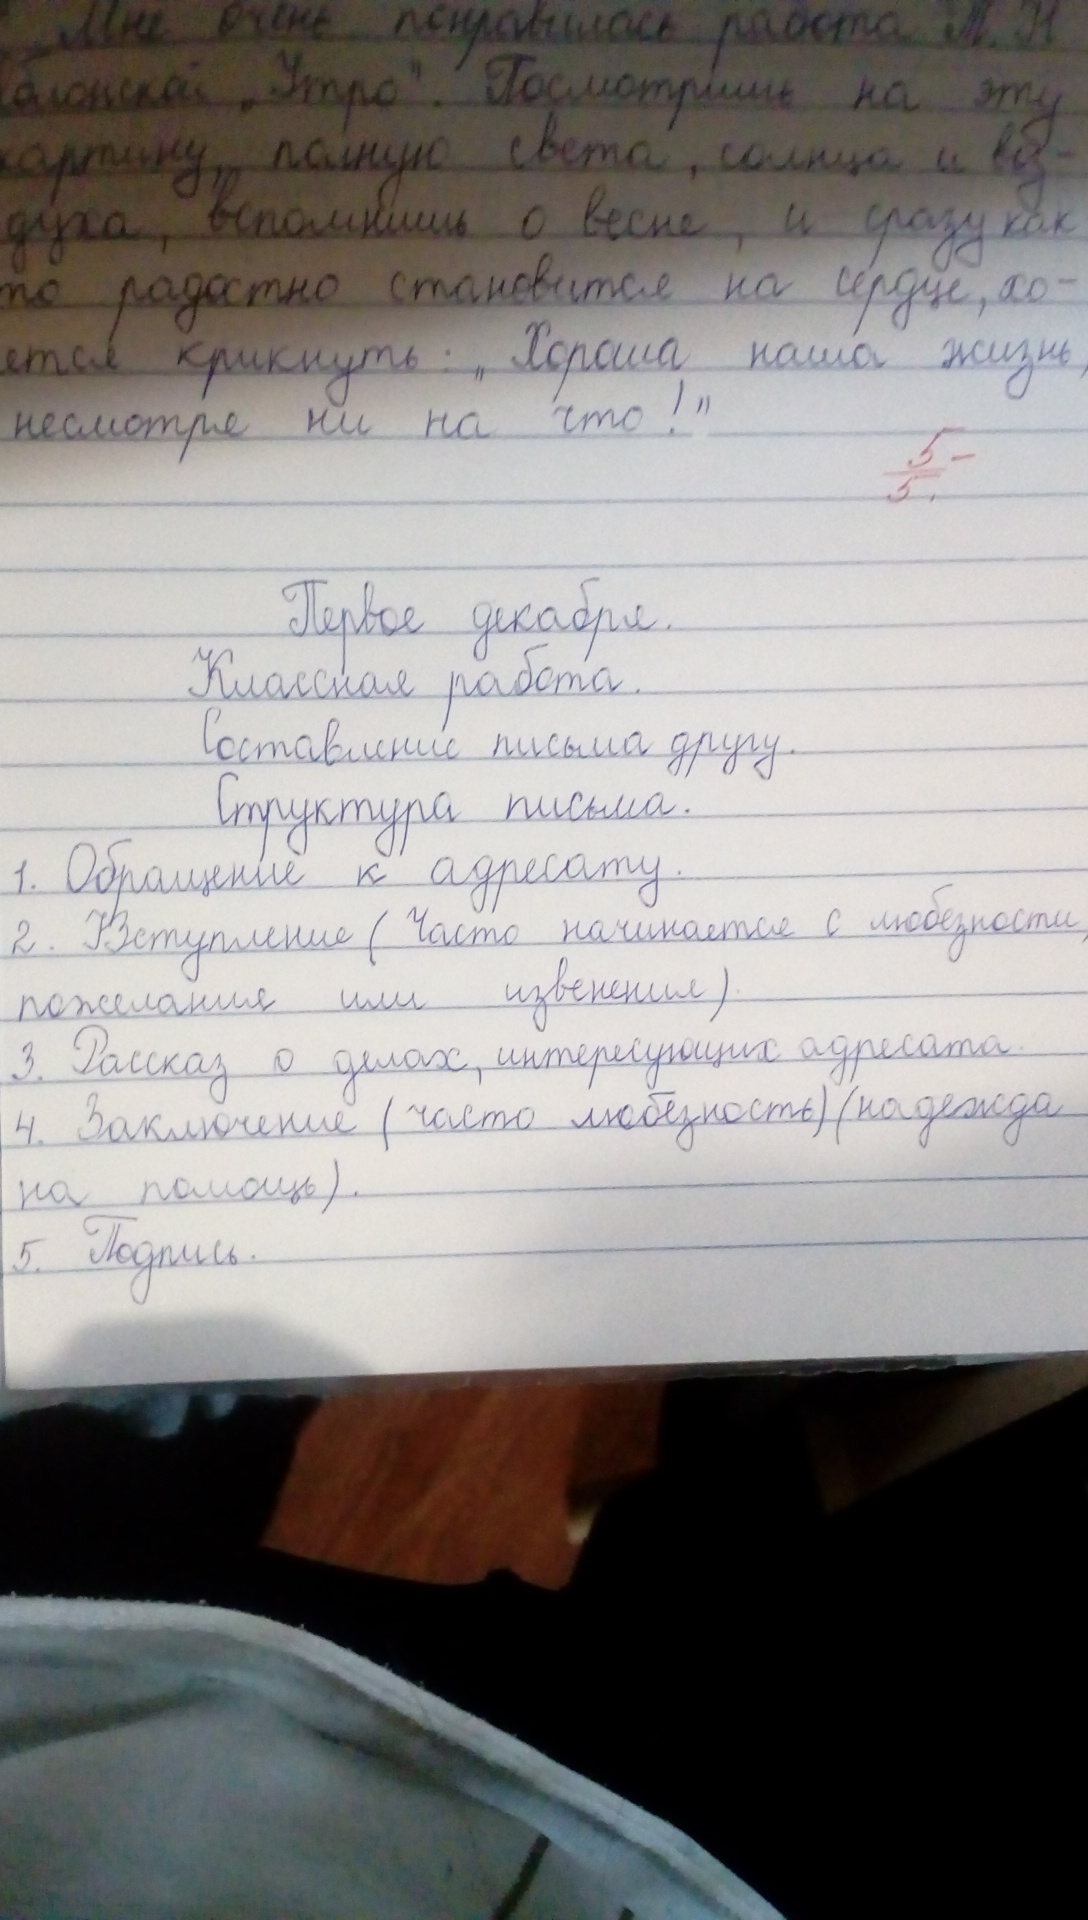 Мне очень понравилась работа Т. Н.
Яблонской „Утро". Посмотришь на эту
картину, полную света, солнца и воз-
духа, вспомнишь о весне, и сразу как
то радостно становится на сердце, хо-
ется крикнуть: „Хороша наша жизнь,
несмотря ни на что!"
5-
5.
Первое декабря.
Классная работа.
Составление письма другу.
Структура письма.
1. Обращение к адресату.
2. Вступление (Часто начинается с любезности,
пожелания или извенения).
3. Рассказ о делах, интересующих адресата.
4. Заключение (часто любезность) (надежда
на помощь).
5. Подпись.